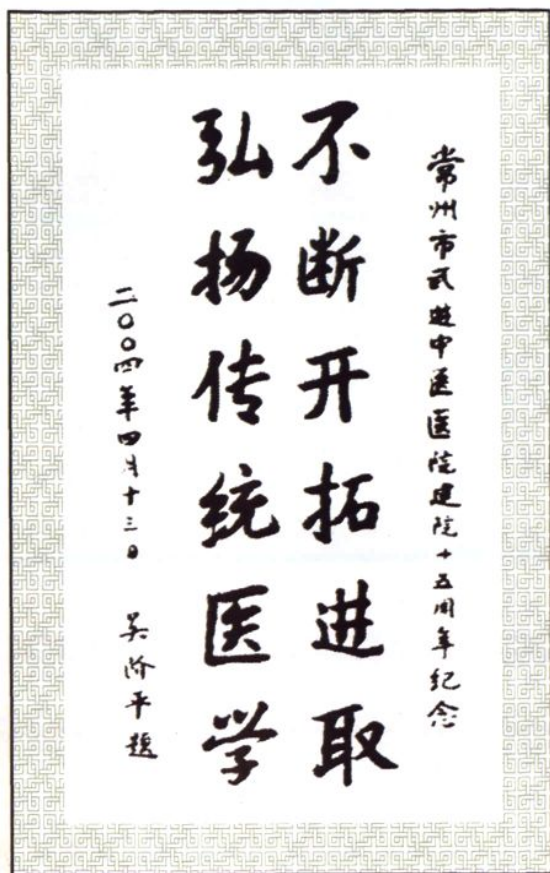 常州市武进中医医院建院十五周年纪念
不断开拓进取
弘扬传统医学
二〇〇四年四月十三日 吴阶平题